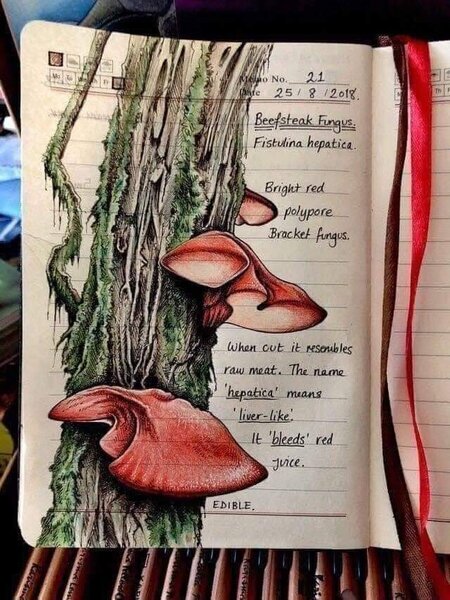 Memo No. 21
Date 25/8/2018.
Beefsteak Fungus.
Fistulina hepatica.
Bright red
polypore
Bracket fungus.
When cut it resembles
raw meat. The name
'hepatica' means
'liver-like'.
It 'bleeds' red
juice.
EDIBLE.